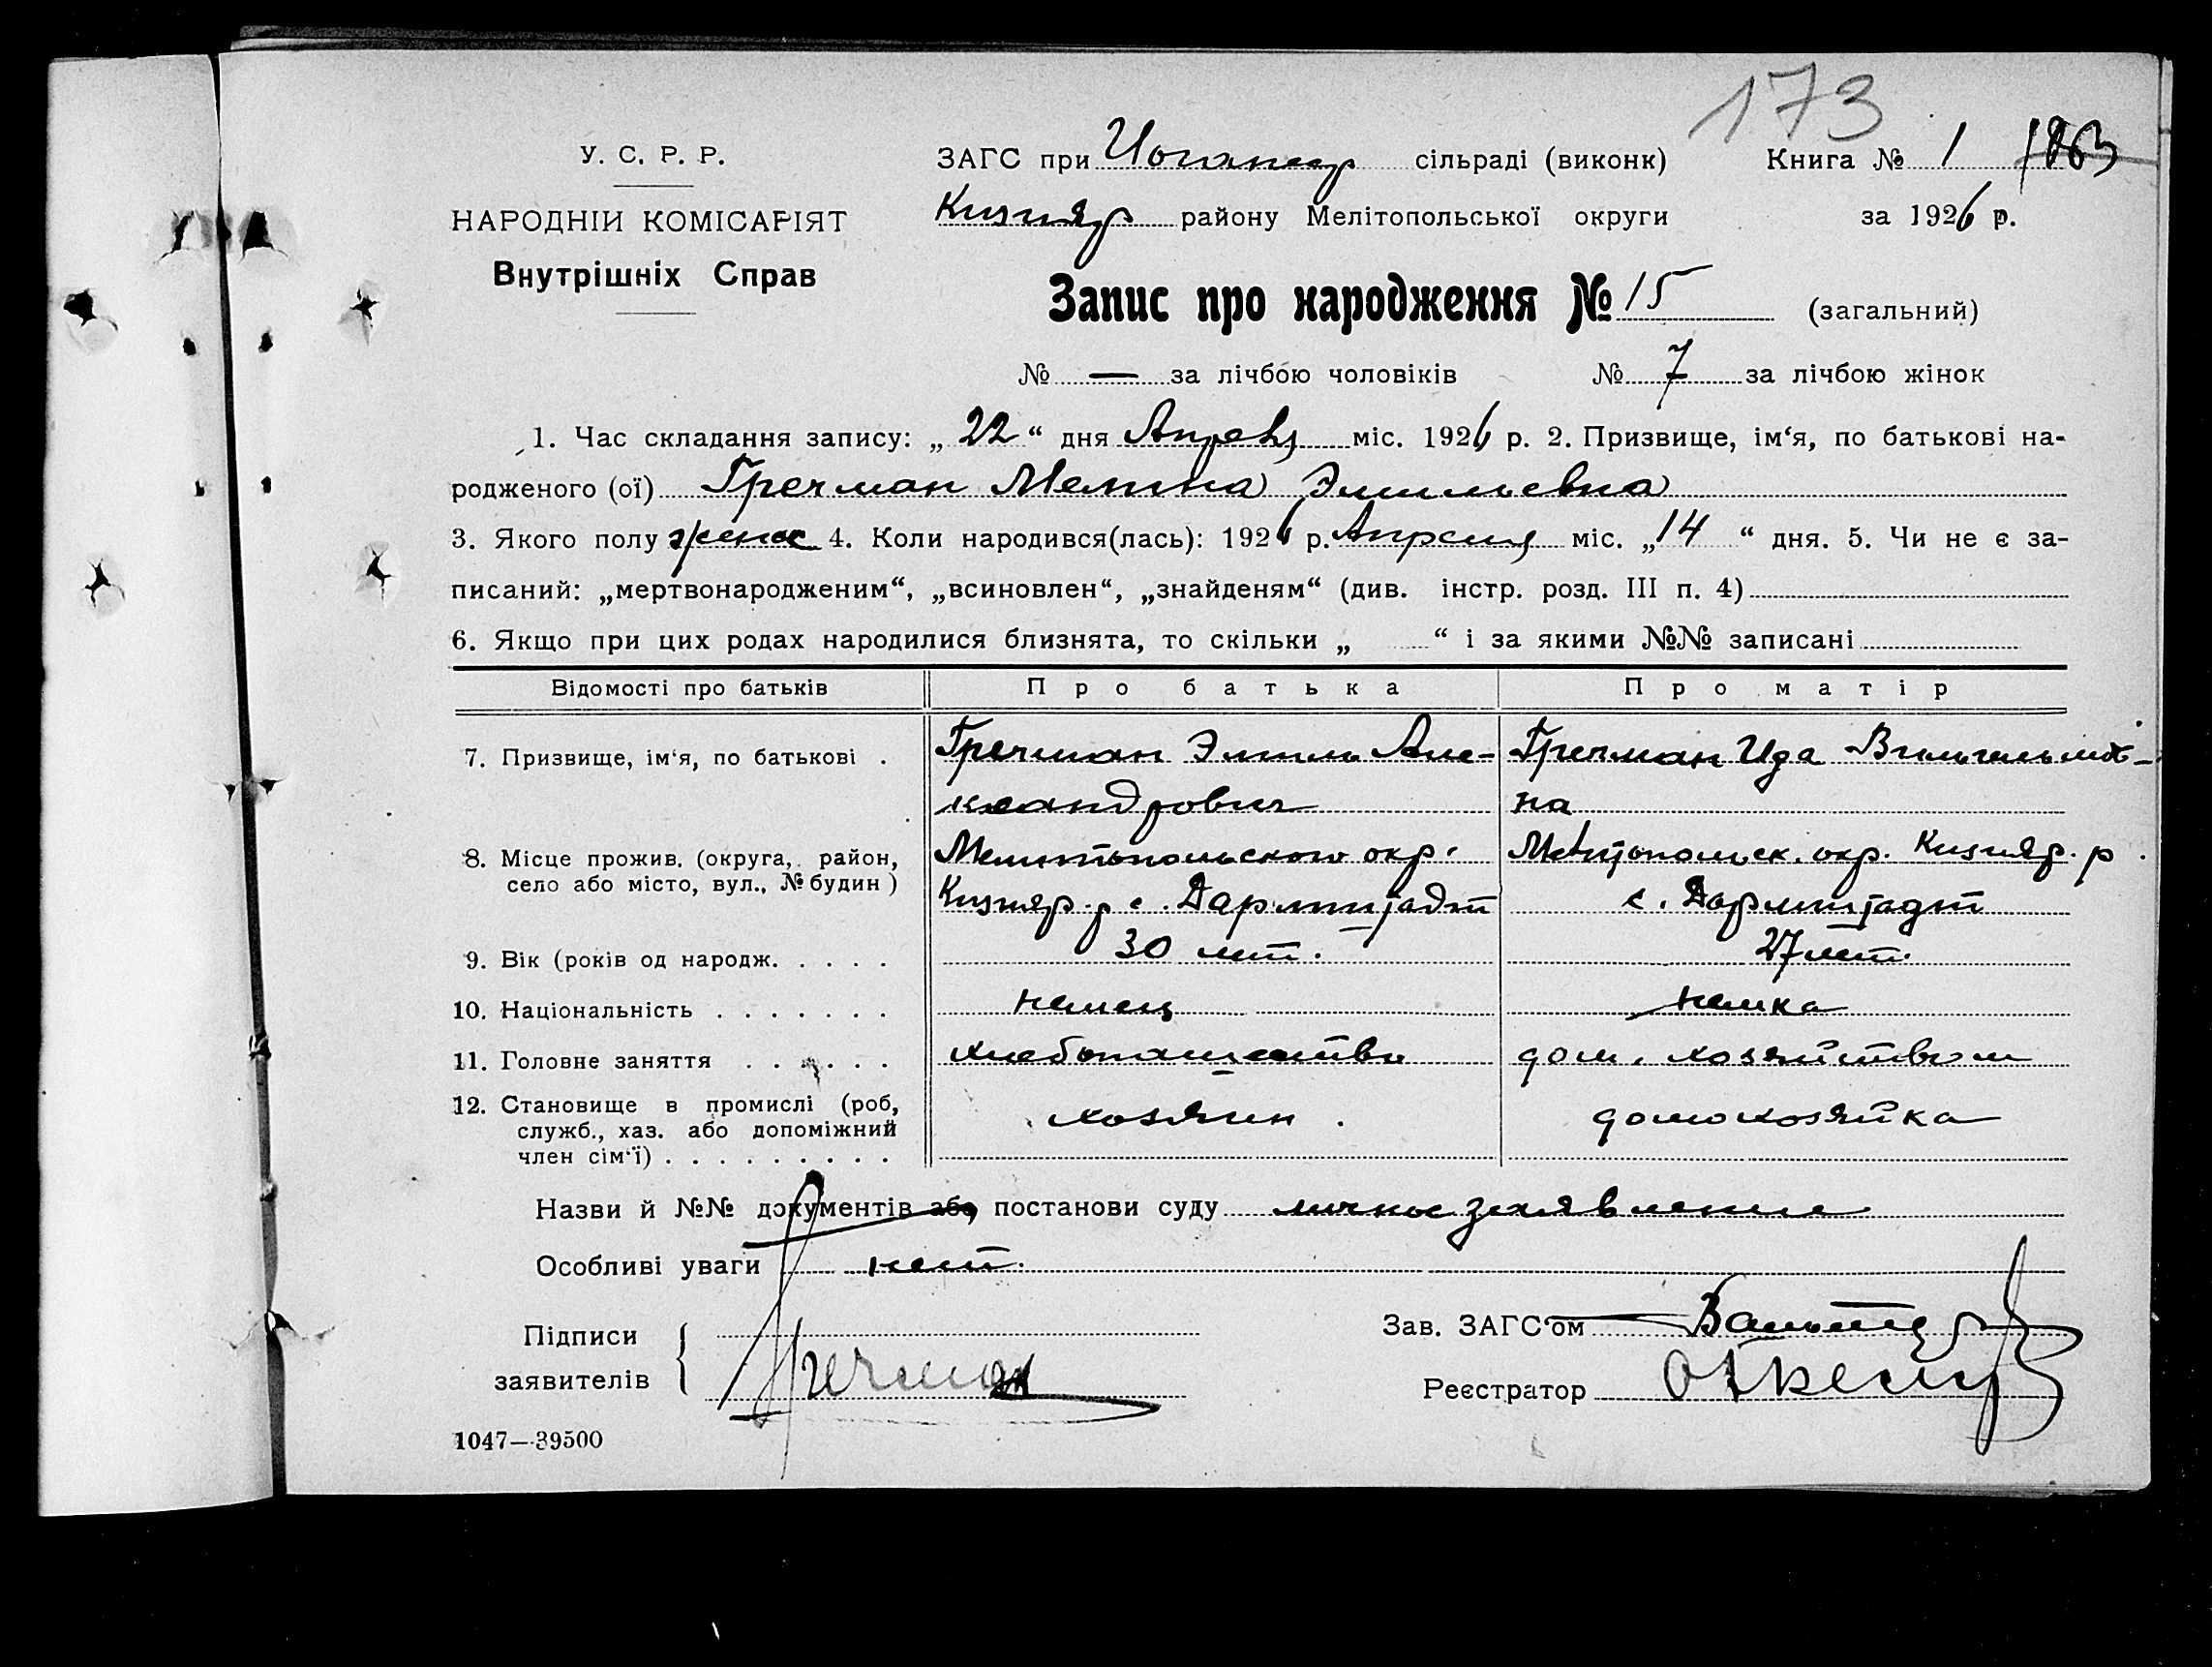 173
У. С. Р. Р.
НАРОДНІЙ КОМІСАРІЯТ
Внутрішніх Справ
ЗАГС при сільраді (виконк) Книга № 1
Кизияр району Мелітопольської округи за 1926 р.
Запис про народження № 15 (загальний)
№ — за лічбою чоловіків № 7 за лічбою жінок
1. Час складання запису: „22“ дня Апреля міс. 1926 р. 2. Призвище, ім‘я, по батькові на-
родженого (ої) Гречман Мелита Эмильевна
3. Якого полу женс 4. Коли народився(лась): 1926 р. Апреля міс. „14“ дня. 5. Чи не є за-
писаний: „мертвонародженим“, „всиновлен“, „знайденям“ (див. інстр. розд. III п. 4)
6. Якщо при цих родах народилися близнята, то скільки „ “ і за якими №№ записані
Відомості про батьків Про батька Про матір
7. Призвище, ім‘я, по батькові . Гречман Эмиль Але- Гречман Ида Вильгельмов-
ксандрович на
8. Місце прожив. (округа, район, Мелитопольского окр. Мелитопольск. окр. Кизияр. р.
село або місто, вул., № будин) Кизияр. р с. Дармштадт с. Дармштадт
9. Вік (років од народж. . . . . 30 лет. 27 лет.
10. Національність . . . . . . . немец немка
11. Головне заняття . . . . . . хлебопашество дом. хозяйством
12. Становище в промислі (роб, хозяин. домохозяйка
служб., хаз. або допоміжний
член сім‘ї) . . . . . . . . .
Назви й №№ документів або постанови суду личное заявление
Особливі уваги нет.
Підписи
заявителів Гречман
Зав. ЗАГС‘ом
Реєстратор
1047—39500